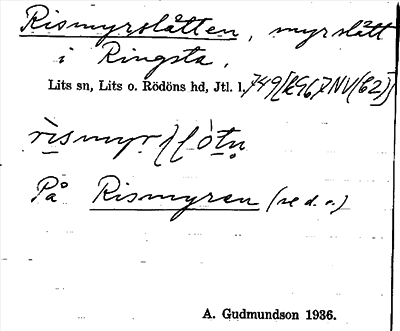 Rismyrslåtten, myrslått
i Ringsta.
Lits sn, Lits o. Rödöns hd, Jtl. l. 749
rismyr
På Rismyran (se d. o.)
A. Gudmundson 1936.